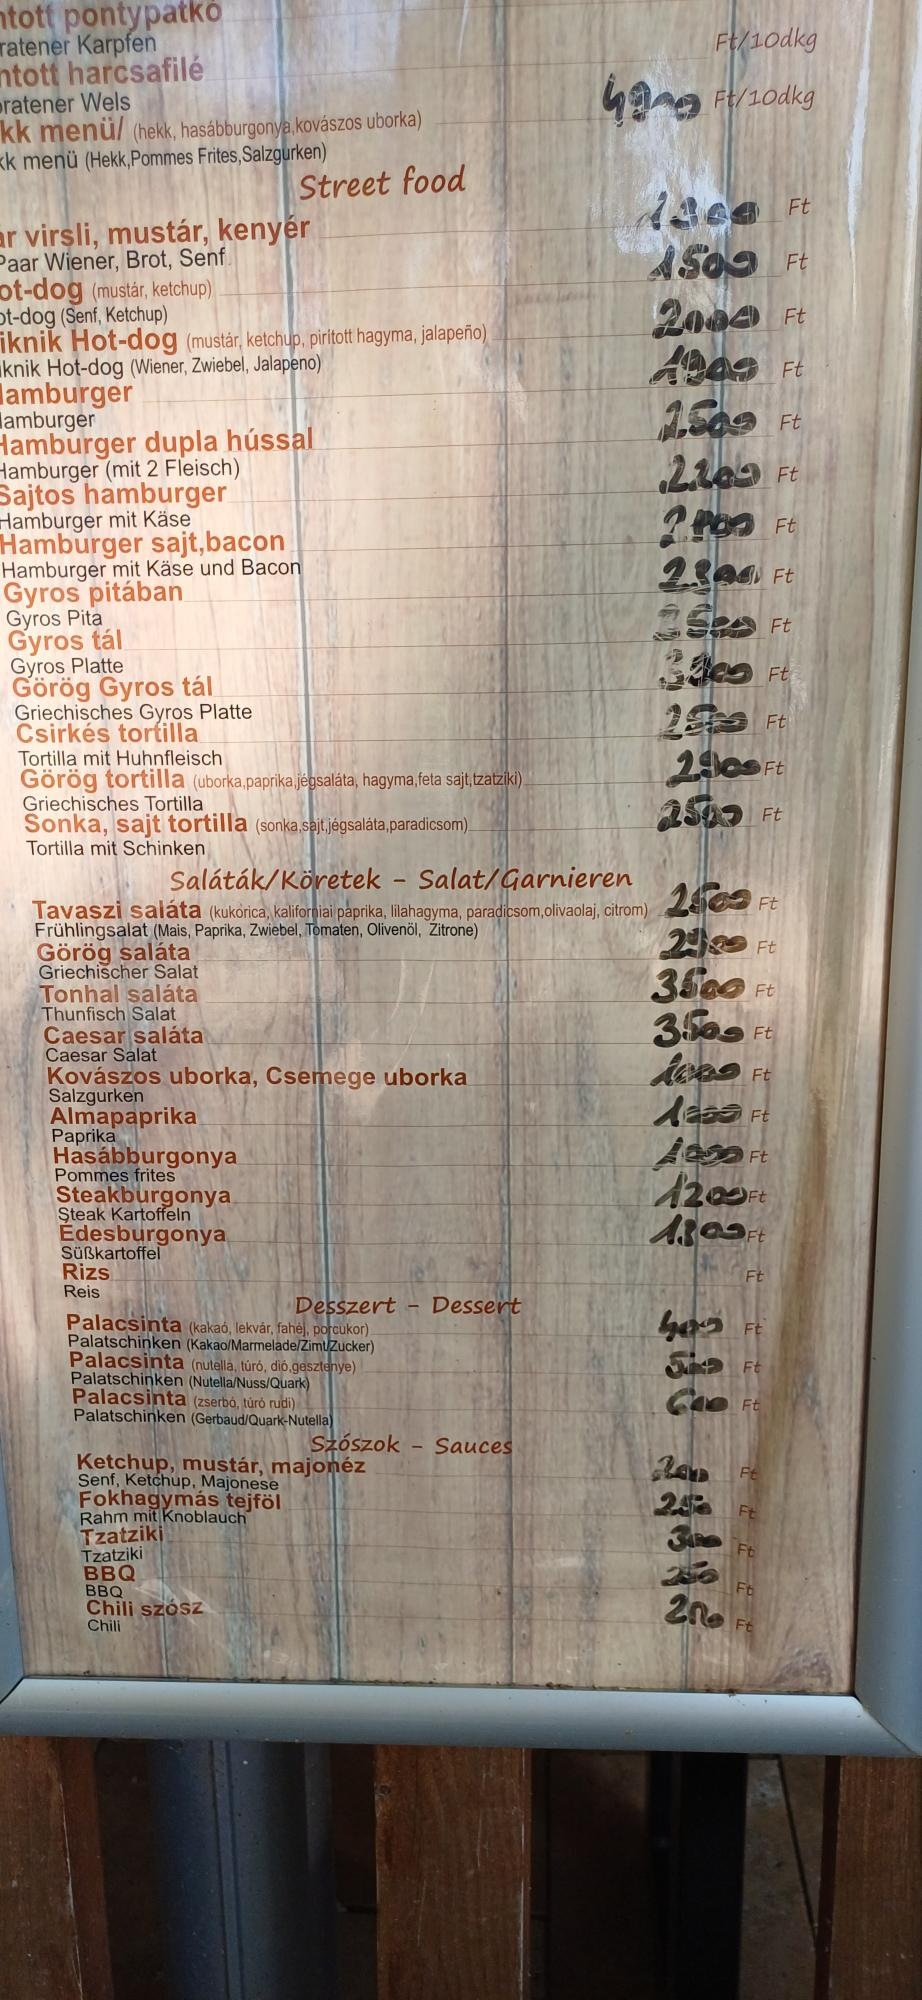 ntott pontypatkó
ratener Karpfen Ft/10dkg
ntott harcsafilé
bratener Wels Ft/10dkg
kk menü/ (hekk, hasábburgonya,kovászos uborka)
kk menü (Hekk,Pommes Frites,Salzgurken)
Street food
ár virsli, mustár, kenyér Ft
Paar Wiener, Brot, Senf
ot-dog (mustár, ketchup) 1500 Ft
ot-dog (Senf, Ketchup)
iknik Hot-dog (mustár, ketchup, pirított hagyma, jalapeño) 2000 Ft
iknik Hot-dog (Wiener, Zwiebel, Jalapeno)
Hamburger 1900 Ft
Hamburger
Hamburger dupla hússal 2500 Ft
Hamburger (mit 2 Fleisch)
Sajtos hamburger Ft
Hamburger mit Käse
Hamburger sajt,bacon Ft
Hamburger mit Käse und Bacon
Gyros pitában 2300 Ft
Gyros Pita
Gyros tál Ft
Gyros Platte
Görög Gyros tál Ft
Griechisches Gyros Platte
Csirkés tortilla 2500 Ft
Tortilla mit Huhnfleisch
Görög tortilla (uborka,paprika,jégsaláta, hagyma,feta sajt,tzatziki) 2900 Ft
Griechisches Tortilla
Sonka, sajt tortilla (sonka,sajt,jégsaláta,paradicsom) 2500 Ft
Tortilla mit Schinken
Saláták/Köretek - Salat/Garnieren
Tavaszi saláta (kukorica, kaliforniai paprika, lilahagyma, paradicsom,olivaolaj, citrom) 2500 Ft
Frühlingsalat (Mais, Paprika, Zwiebel, Tomaten, Olivenöl, Zitrone)
Görög saláta 2900 Ft
Griechischer Salat
Tonhal saláta 3500 Ft
Thunfisch Salat
Caesar saláta 3500 Ft
Caesar Salat
Kovászos uborka, Csemege uborka 1000 Ft
Salzgurken
Almapaprika 1000 Ft
Paprika
Hasábburgonya 1000 Ft
Pommes frites
Steakburgonya 1200 Ft
Steak Kartoffeln
Édesburgonya 1300 Ft
Süßkartoffel
Rizs Ft
Reis
Desszert - Dessert
Palacsinta (kakaó, lekvár, fahéj, porcukor) 400 Ft
Palatschinken (Kakao/Marmelade/Zimt/Zucker)
Palacsinta (nutella, túró, dió,gesztenye) 500 Ft
Palatschinken (Nutella/Nuss/Quark)
Palacsinta (zserbó, túró rudi) 600 Ft
Palatschinken (Gerbaud/Quark-Nutella)
Szószok - Sauces
Ketchup, mustár, majonéz 200 Ft
Senf, Ketchup, Majonese
Fokhagymás tejföl 250 Ft
Rahm mit Knoblauch
Tzatziki 300 Ft
Tzatziki
BBQ 250 Ft
BBQ
Chili szósz Ft
Chili